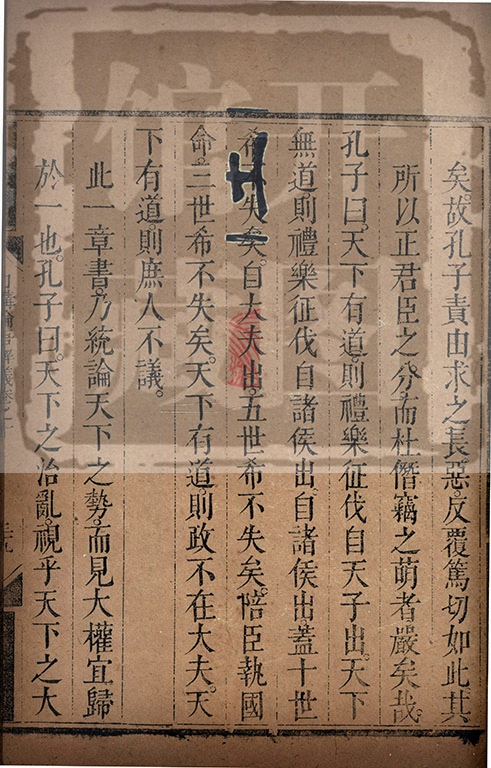 矣。故孔子責由求之長惡。反覆篤切如此。其
所以正君臣之分。而杜僭竊之萌者嚴矣哉。
孔子曰。天下有道。則禮樂征伐自天子出。天下
無道。則禮樂征伐自諸侯出。自諸侯出。蓋十世
希不失矣。自大夫出。五世希不失矣。陪臣執國
命。三世希不失矣。天下有道。則政不在大夫。天
下有道。則庶人不議。
此一章書。乃統論天下之勢。而見大權宜歸
於一也。孔子曰。天下之治亂。視乎天下之大